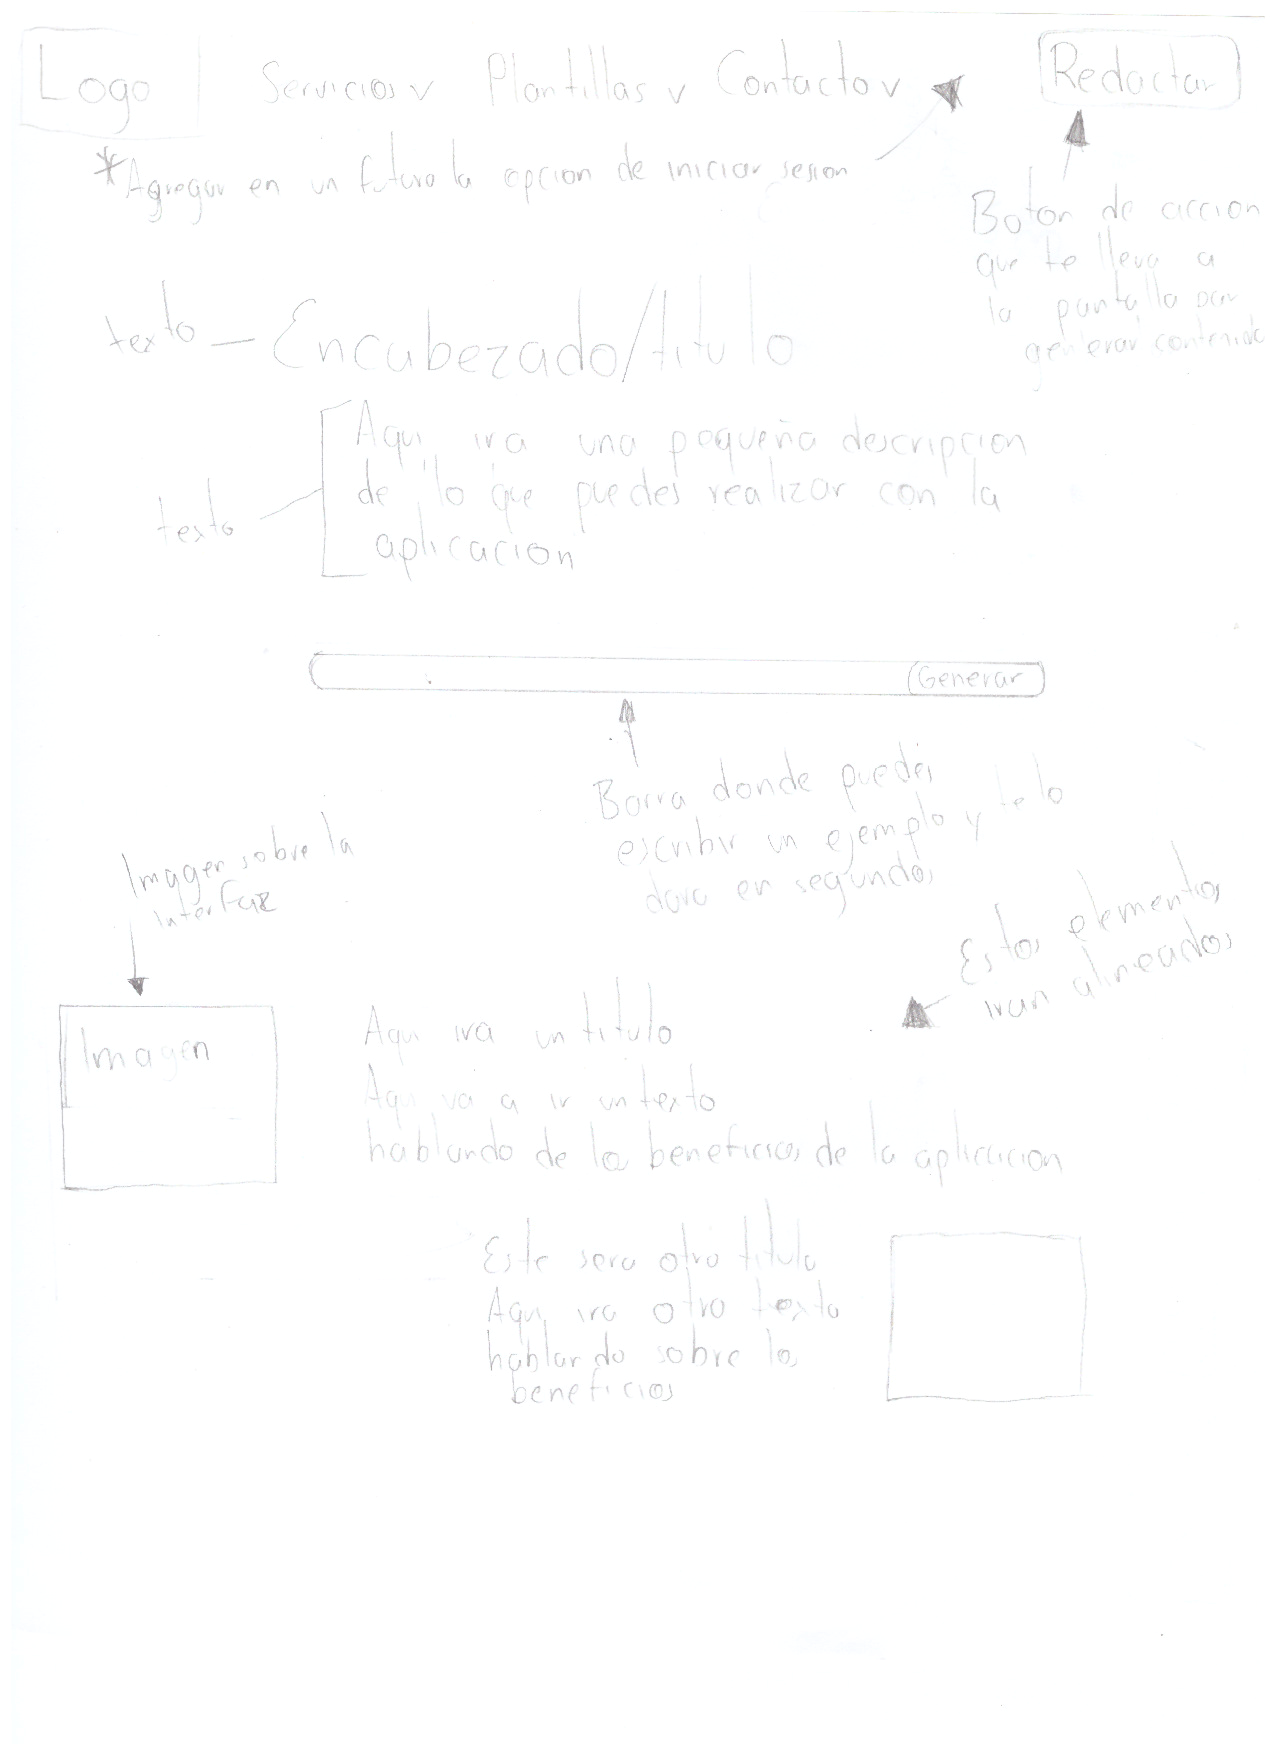 Logo
Servicios v Plantillas v Contacto v
Redactar
*Agregar en un futuro la opcion de iniciar sesion
Boton de accion
que te lleva a
la pantalla par
generar contenido
texto - Encabezado/titulo
texto
Aqui ira una pequeña descripcion
de lo que puedes realizar con la
aplicacion
Generar
Barra donde puedes
escribir un ejemplo y te lo
dara en segundos
Imagen sobre la
interfaz
Estos elementos
iran alineados
Imagen
Aqui ira un titulo
Aqui va a ir un texto
hablando de los beneficios de la aplicacion
Este sera otro titulo
Aqui ira otro texto
hablando sobre los
beneficios